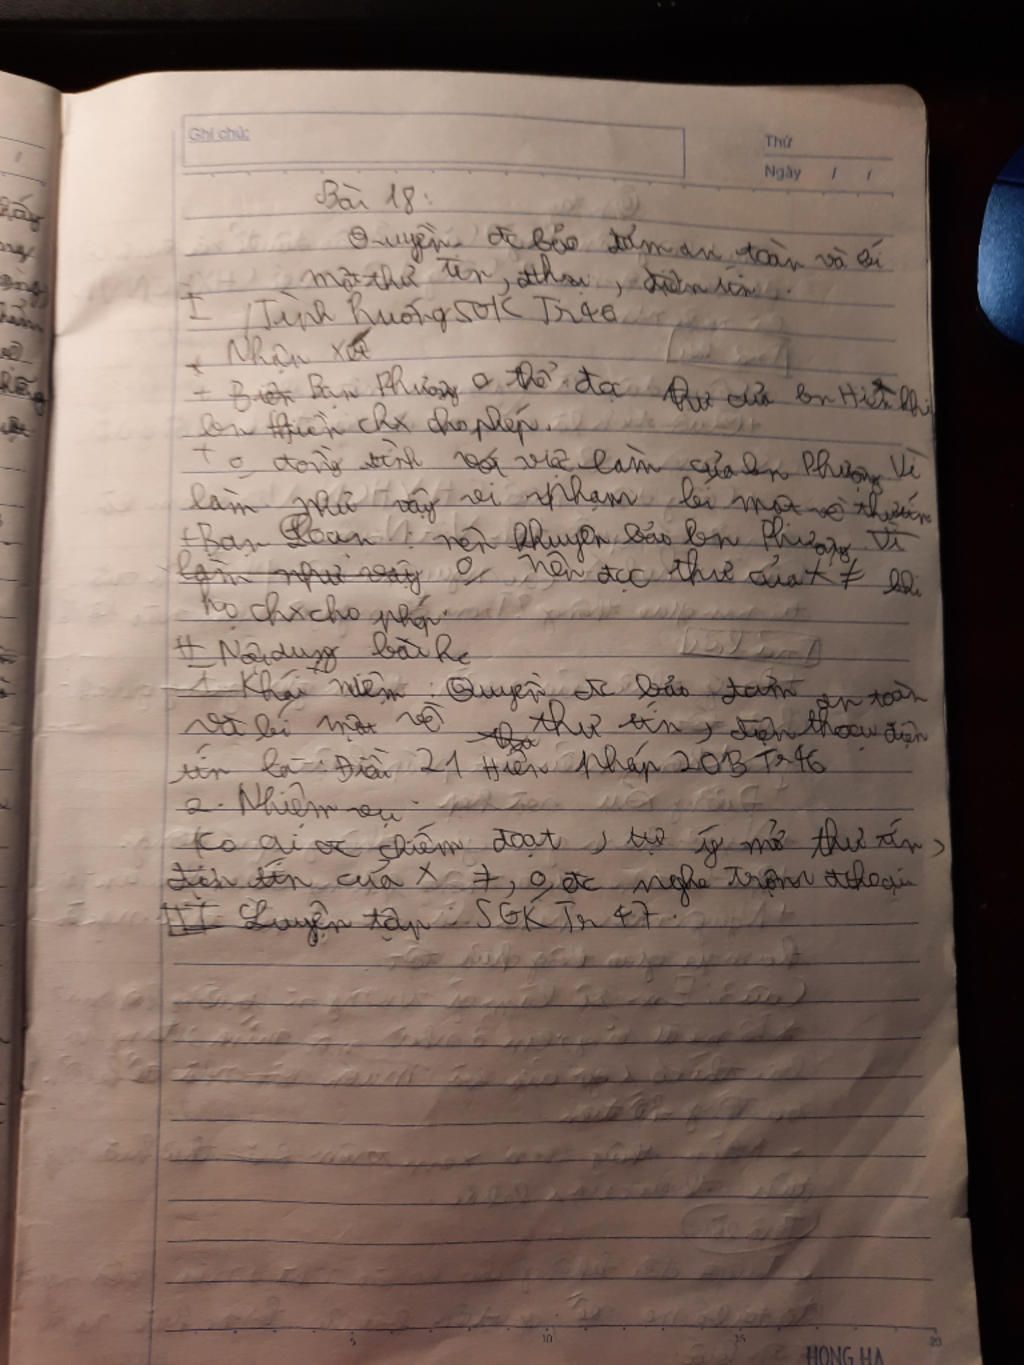 Ghi chú:
Thứ
Ngày / /
Bài 18:
Quyền đc bảo đảm an toàn và bí
mật thư tín, đthoại, điện tín.
I Tình huống SGK Tr46
* Nhận xét
+ Bạn Phượng 0 thể đọc thư của bn Hiền khi
bn Hiền chx cho phép.
+ 0 đồng tình với việc làm của bn Phượng Vì
làm như vậy vi phạm bí mật về thư tín
+ Bạn Loan: nên khuyên bảo bn Phượng Vì
làm như vậy 0 nên đọc thư của ≠ khi
họ chx cho phép.
II Nội dung bài hc
1 Khái niệm: Quyền đc bảo đảm an toàn
và bí mật về thư tín, điện thoại điện
tín là: Điều 21 Hiến Pháp 2013 Tr46
2. Nhiệm vụ:
Ko ai đc chiếm đoạt, tự ý mở thư tín,
điện tín của ≠, 0 đc nghe trộm đthoại
III Luyện tập: SGK Tr 47.
5 10 15 20
HONG HA